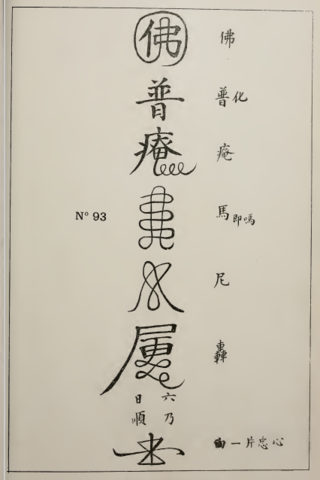 佛 佛
普 普化
庵 庵
Nº 93 馬 即嗎
尼
轟
日 六
順 乃
一片忠心